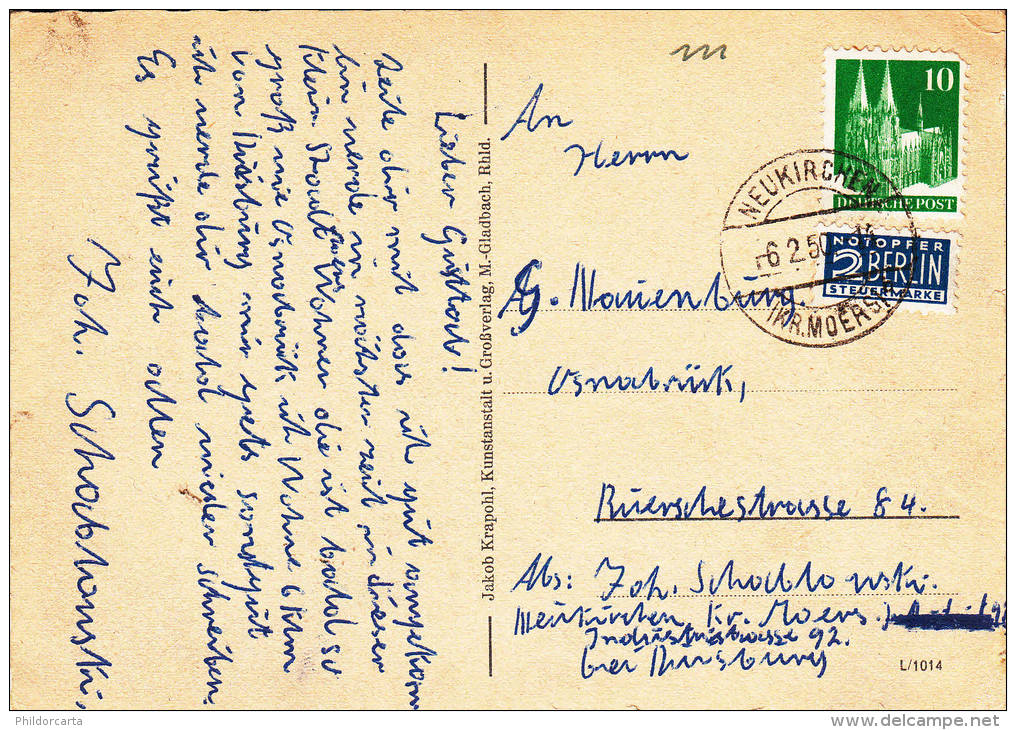 Lieber Gusttav!
teile dir mit das ich gut angekom
bin werde in nächster zeit in dieser
klein Stadt Moers Wohnen die ist bald so
groß wie Osnabrük ich Wohne 6 klm
von Duisburg mir gets sonst gut
ich werde dir bald wieder schreiben.
Es grüßt euch allen
Joh. Schablowski.
Jakob Krapohl, Kunstanstalt u. Großverlag, M.-Gladbach, Rhld.
10
DEUTSCHE POST
NOTOPFER
2 BERLIN
STEUERMARKE
NEUKIRCHEN
-6 2.50
(KR. MOERS)
An
Herrn
G. Mauenburg.
Osnabrük,
Buerschestrasse 84.
Abs: Joh. Schablowski.
Neukirchen Kr. Moers.
Industriestrasse 92.
bei Duisburg
L/1014
Phildorcarta
delcampe.net